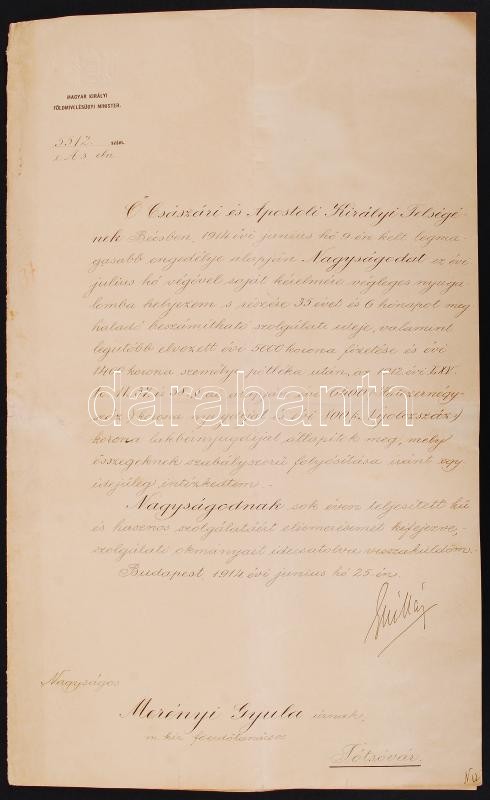 MAGYAR KIRÁLYI
FÖLDMIVELÉSÜGYI MINISTER.
5512 szám.
eln
Ő Császári és Apostoli Királyi Felségé-
nek Bécsben, 1914 évi junius hó 9-én kelt legma-
gasabb engedélye alapján Nagyságodat ez évi
julius hó végével saját kérelmére végleges nyuga-
lomba helyezem s részére 35 évet és 6 hónapot meg
haladó beszámitható szolgálati ideje, valamint
legutóbb élvezett évi 5000 korona fizetése és évi
1400 korona személyi pótléka után, az 1912 évi LXV.
t. cz. 37. és 38. §-ai alapján évi 6400
korona nyugdíjat és évi
korona lakbérnyugdíjat állapítok meg, mely
összegeknek szabályszerű folyósítása iránt egy-
idejüleg intézkedtem.
Nagyságodnak sok éven teljesített hű
és hasznos szolgálataiért elismerésemet kifejezve,
szolgálati okmányait idecsatolva visszaküldöm.
Budapest, 1914 évi junius hó 25-én.
Nagyságos
Merényi Gyula úrnak,
m. kir. főerdőtanácsos
Tótsóvár.
darabanth